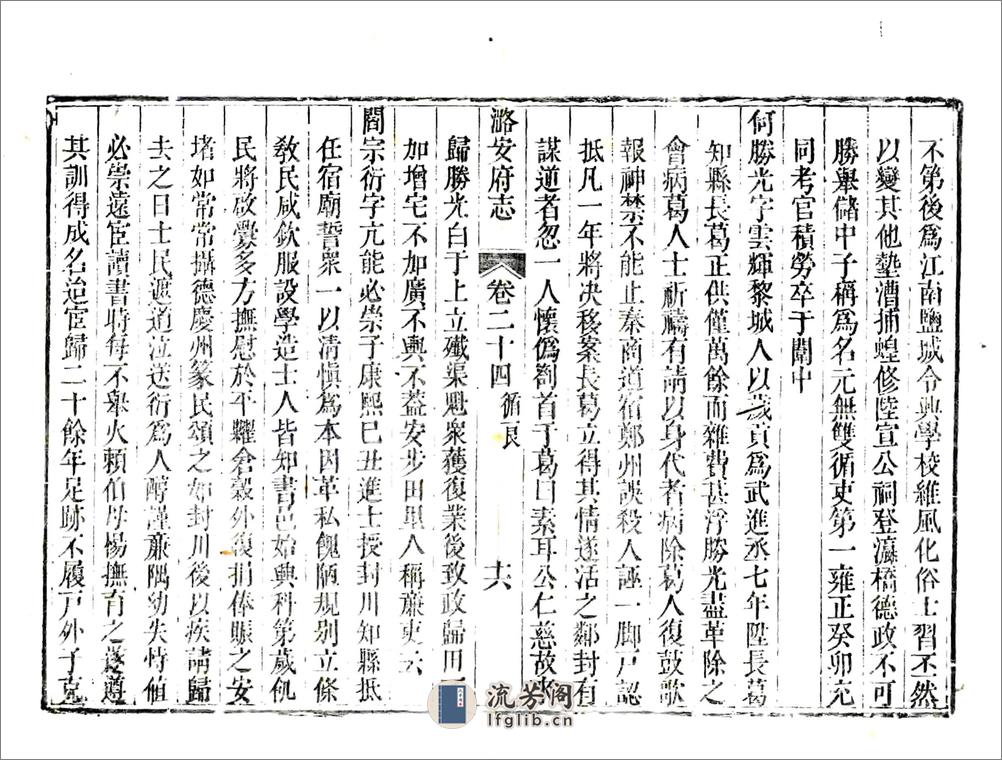 不第後爲江南鹽城令興學校維風化俗士習丕然
以變其他墊漕捕蝗修陸宣公祠登瀛橋德政不可
勝舉儲中子稱爲名元無雙循吏第一雍正癸卯充
同考官積勞卒于闈中
何勝光字雲輝黎城人以歲貢爲武進丞七年陞長葛
知縣長葛正供僅萬餘而雜費甚浮勝光盡革除之
會病葛人士祈禱有請以身代者病除葛人復鼓歌
報神禁不能止秦商道宿鄭州誤殺人誣一脚戸認
抵凡一年將决移案長葛立得其情遂活之鄰封有
謀道者忽一人懷僞劄首于葛曰素耳公仁慈故來
潞安府志 卷二十四 循良 十六
歸勝光白于上立殲渠魁衆獲復業後致政歸田
加增宅不加廣不輿不蓋安步田里人稱廉吏云
閻宗衍字亢能必崇子康熙巳丑進士授封川知縣抵
任宿廟誓衆一以清慎爲本因革私餽陋規别立條
敎民咸欽服設學造士人皆知書邑始興科第歲飢
民將啟釁多方撫慰於平糶倉穀外復捐俸賑之安
堵如常常攝德慶州篆民頌之如封川後以疾請歸
去之日士民遮道泣送衍爲人醇謹廉隅幼失恃值
必崇遠宦讀書時每不舉火賴伯母楊撫育之遂遵
其訓得成名迨宦歸二十餘年足跡不履戸外子克
流芳阁
lfglib.cn